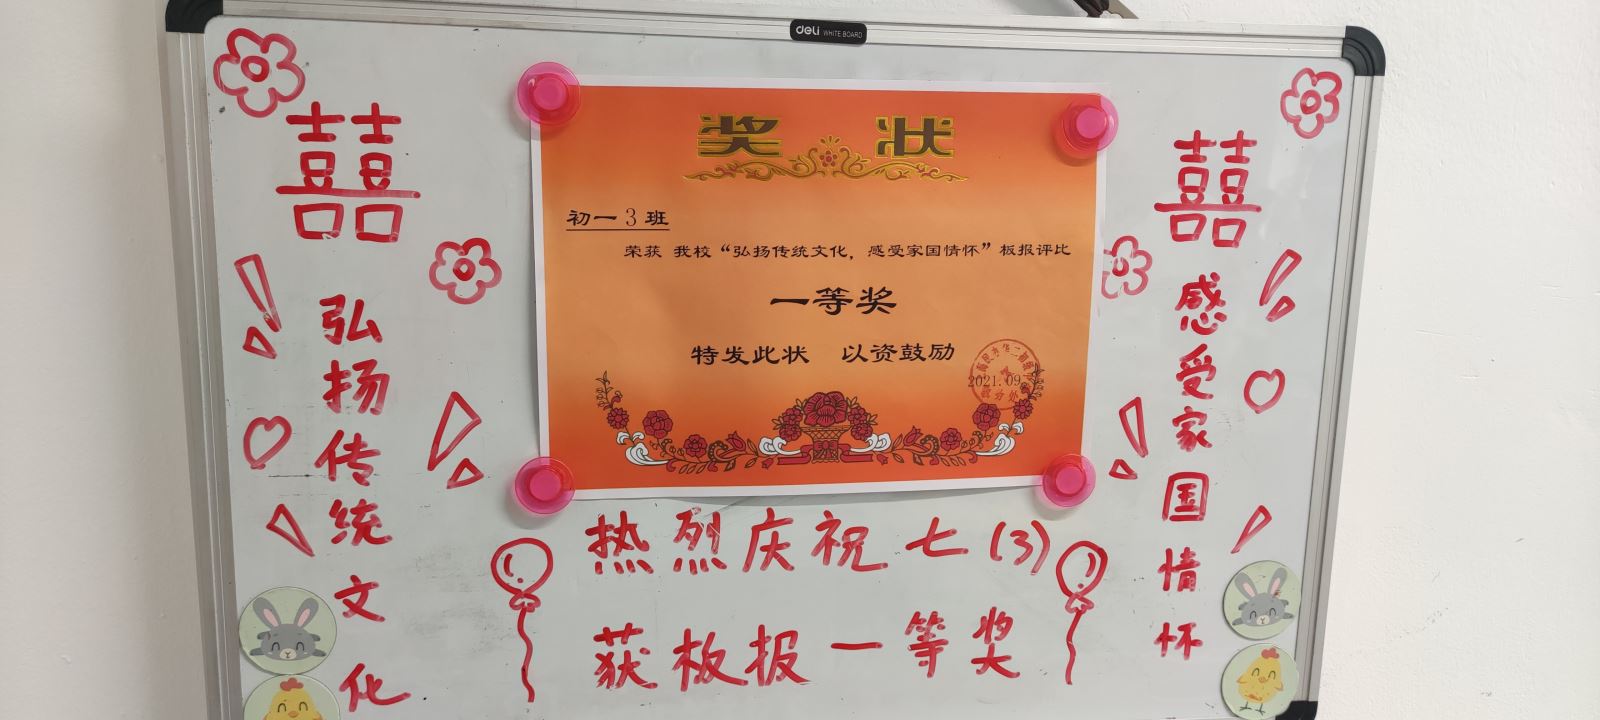 deli WHITE BOARD
奖 状
初一 3 班
荣获 我校“弘扬传统文化，感受家国情怀”板报评比
一等奖
特发此状 以资鼓励
2021.09
囍
弘扬传统文化
囍
感受家国情怀
热烈庆祝七(3)
获板报一等奖